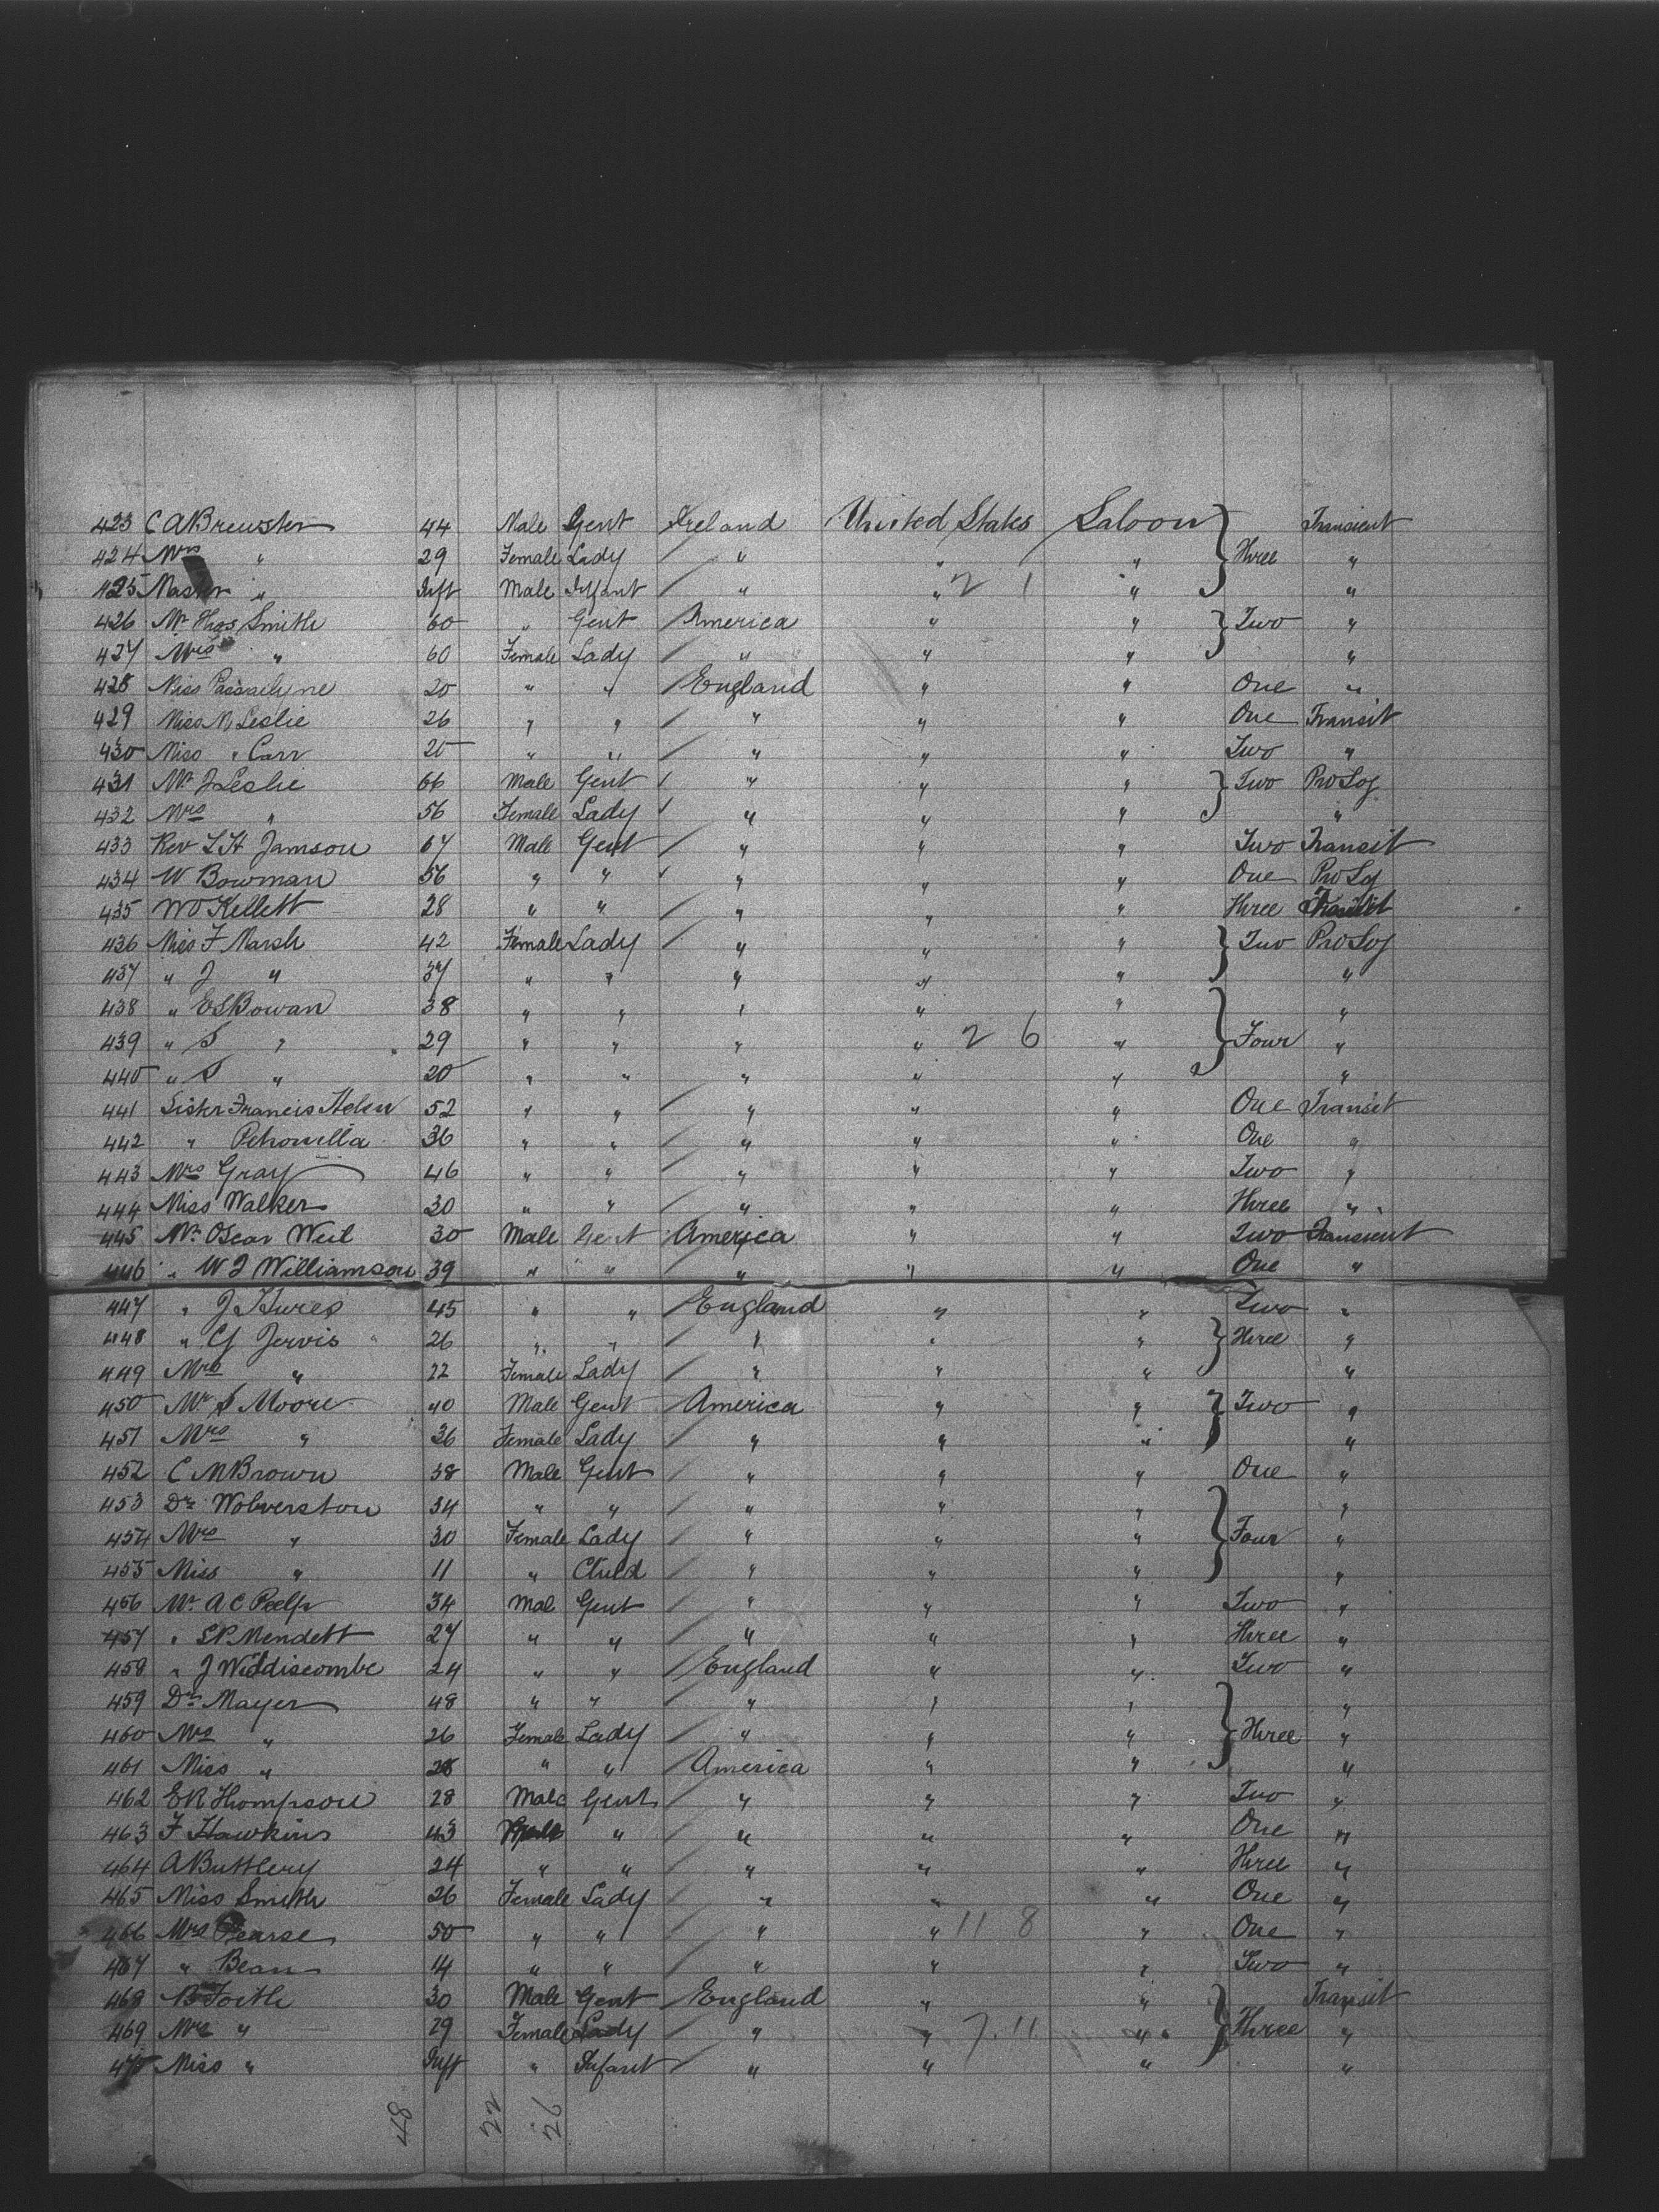 423 C A Brewster 44 Male Gent Ireland United States Saloon Transient
424 Mrs " 29 Female Lady " " " Three "
425 Master " Inft Male Infant " " 2 1 " "
426 Mr Thos Smith 60 " Gent America " " Two "
427 Mrs " 60 Female Lady " " " "
428 Miss 20 " " England " " One "
429 Miss M Leslie 26 " " " " " One Transit
430 Miss " Carr 25 " " " " " Two "
431 Mr J Leslie 66 Male Gent " " " Two Pro Log
432 Mrs " 56 Female Lady " " " "
433 Rev L H Jamson 67 Male Gent " " " Two Transit
434 W Bowman 56 " " " " " One Pro Log
435 W O Kellett 28 " " " " " Three Transit
436 Miss F Marsh 42 Female Lady " " " Two Pro Log
437 " J " 37 " " " " " "
438 " E S Bowan 38 " " " " " "
439 " S " 29 " " " " 2 6 " Four "
440 " S " 20 " " " " " "
441 Sister Francis Helen 52 " " " " " One Transit
442 " Petronilla 36 " " " " " One "
443 Mrs Gray 46 " " " " " Two "
444 Miss Walker 30 " " " " " Three "
445 Mr Oscar Weil 30 Male Gent America " " Two Transient
446 " W J Williamson 39 " " " " " One "
447 " J Hures 45 " " England " " Two "
448 " Jervis 26 " " " " " Three "
449 Mrs " 22 Female Lady " " " "
450 Mr S Moore 40 Male Gent America " " Two "
451 Mrs " 36 Female Lady " " " "
452 C M Brown 38 Male Gent " " " One "
453 Dr Wolverston 34 " " " " " "
454 Mrs " 30 Female Lady " " " Four "
455 Miss " 11 " Child " " " "
456 Mr A C Peelp 34 Mal Gent " " " Two "
457 " S P Mendett 27 " " " " " Three "
458 " J Widdiscombe 24 " " England " " Two "
459 Dr Mayer 48 " " " " " "
460 Mrs " 26 Female Lady " " " Three "
461 Miss " 28 " " America " " "
462 E R Thompson 28 Male Gent " " " Two "
463 F Hawkins 43 " " " " One "
464 A Buttlery 24 " " " " " Three "
465 Miss Smith 26 Female Lady " " " One "
466 Mrs Pearse 50 " " " " 11 8 " One "
467 " Bean 14 " " " " " Two "
468 B Forth 30 Male Gent England " " Transit
469 Mrs " 29 Female Lady " " 7.11 " Three "
470 Miss " Inft " Infant " " " "
48 22 26